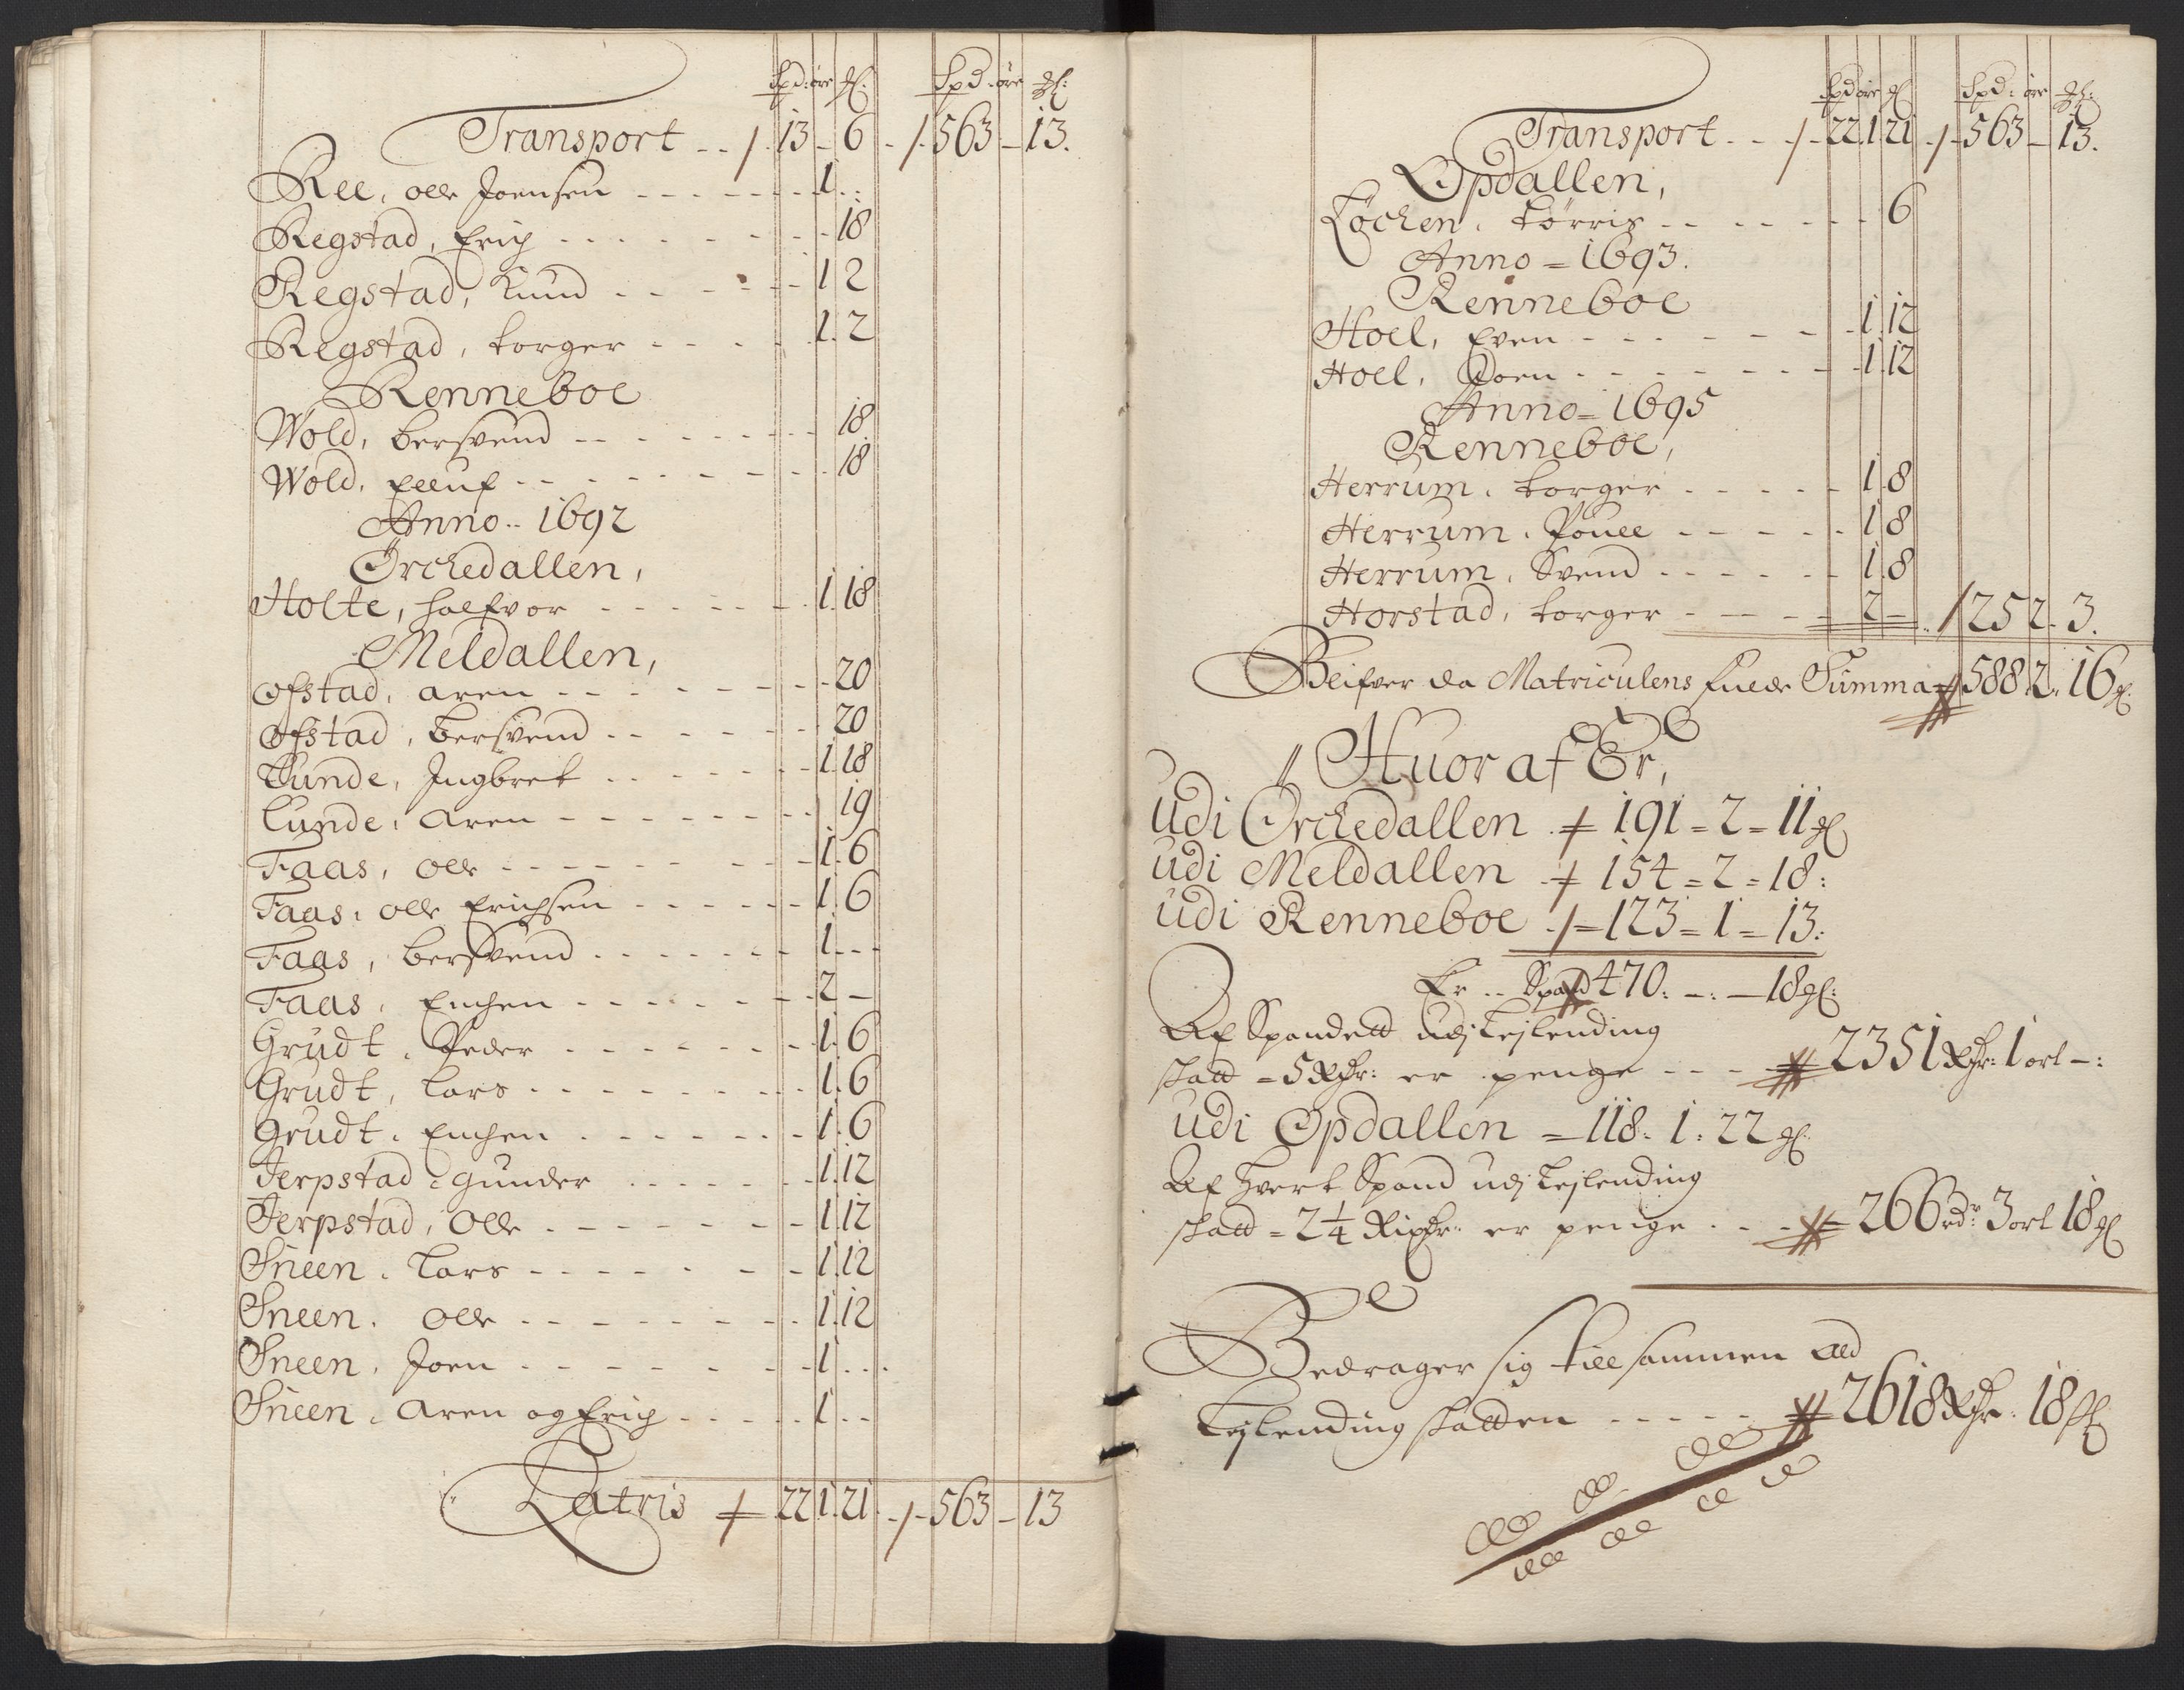 Spd: øre gl: Spd: øre gl:
Transport - - 13 - 6 - 563 - 13.
Ree, Olle Joensen - - - 1 - -
Regstad, Erich - - - 18
Regstad, Knud - - - 1 2
Regstad, Torger - - - 1. 2
Renneboe
Wold, Bersvend - - - 18
Wold, Elluf - - - 18
Anno - 1692
Ørchedallen,
Holte, Halfvor - - - 1. 18
Meldallen,
Ofstad, Aren - - - 20
Ofstad, Bersvend - - - 20
Lunde, Ingbret - - - 1. 18
Lunde, Aren - - - 19
Faas, Olle - - - 1. 6
Faas, Olle Erichsen - - - 1. 6
Faas, Bersvend - - - 1 - -
Faas, Enchen - - - 2 -
Grudt, Peder - - - 1. 6
Grudt, Lars - - - 1. 6
Grudt, Enchen - - - 1. 6
Jerpstad, Gunder - - - 1. 12
Jerpstad, Olle - - - 1. 12
Sneen, Lars - - - 1. 12
Sneen, Olle - - - 1. 12
Sneen, Joen - - - 1 - -
Sneen, Aren og Erich - - - 1 - -
Latris 22. 1. 21. - 563 - 13
Spd øre gl Spd: øre gl:
Transport - - - 22. 1. 21 - 563 - 13.
Opdallen,
Løchen, Tørris - - - 6
Anno = 1693.
Renneboe
Hoel, Even - - - 1. 12
Hoel, Joen - - - 1. 12
Anno = 1695
Renneboe,
Herrum, Torger - - - 1. 8
Herrum, Povel - - - 1. 8
Herrum, Svend - - - 1. 8
Horstad, Torger - - - 2 - 25 2. 3.
Blifver da Matriculens fulde Summa 588. 2. 16 gl:
Huoraf Er,
udi Ørchedallen - 191 = 2 = 11 gl
udi Meldallen - 154 = 2 = 18:
udi Renneboe - 123 = 1 = 13:
Er - - Spand 470: - : - 18 gl:
Af Spandett udj Lejlending
skatt = 5 Rdr: er penge - - - 2351 Rdr: 1 ort - :
udi Opdallen = 118: 1: 22 gl:
Af hvert Spand udj Lejlending
skatt = 2 1/4 Rixdr: er penge - - - 266 rdr 3 ort 18 gl
Bedrager sig till sammen all
Lejlending skatten - - - 2618 Rdr: 18 sl